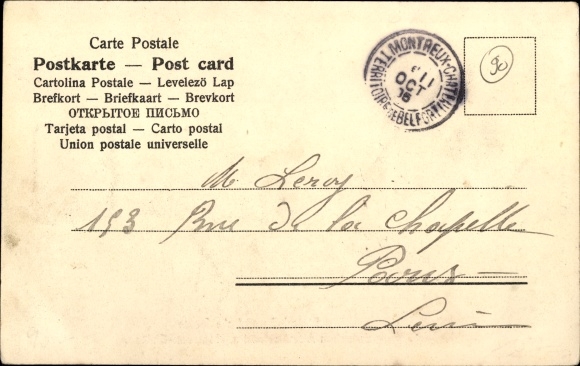 Carte Postale
Postkarte — Post card
Cartolina Postale — Levelező Lap
Brefkort — Briefkaart — Brevkort
ОТКРЫТОЕ ПИСЬМО
Tarjeta postal — Carto postal
Union postale universelle
MONTREUX-CHATEAU
11
OCT
TERRITOIRE DE BELFORT
90
M Leroy
193 Rue de la Chapelle
Paris